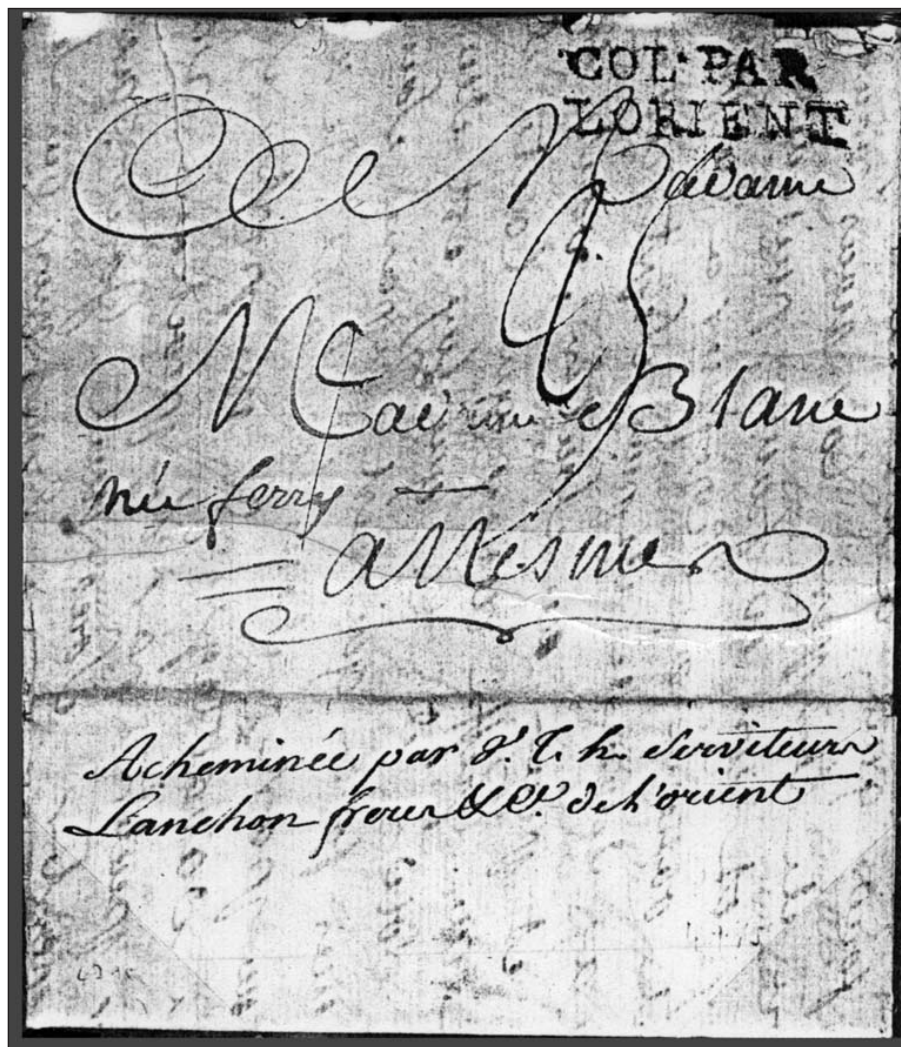 COL·PAR
LORIENT
Madame
Madame Blanc
née ferry
a Nismes
Acheminée par v. T. h. Serviteurs
Lanchon freres & Ce. de L'orient